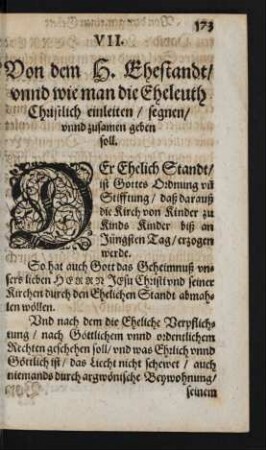 173
VII.
Von dem H. Ehestandt/
vnnd wie man die Eheleuth
Christlich einleiten / segnen/
vnnd zusamen geben
soll.
DEr Ehelich Standt/
ist Gottes Ordnung vñ
Stifftung / daß darauß
die Kirch von Kinder zu
Kinds Kinder biß an
Jüngsten Tag / erzogen
werde.
So hat auch Gott das Geheimnuß vn-
sers lieben HERRN JEsu Christi vnd seiner
Kirchen durch den Ehelichen Standt abmah-
len wöllen.
Vnd nach dem die Eheliche Verpflich-
tung / nach Göttlichem vnnd ordentlichem
Rechten geschehen soll / vnd was Ehrlich vnnd
Göttlich ist / das Liecht nicht schewet / auch
niemands durch argwönische Beywohnung/
seinem